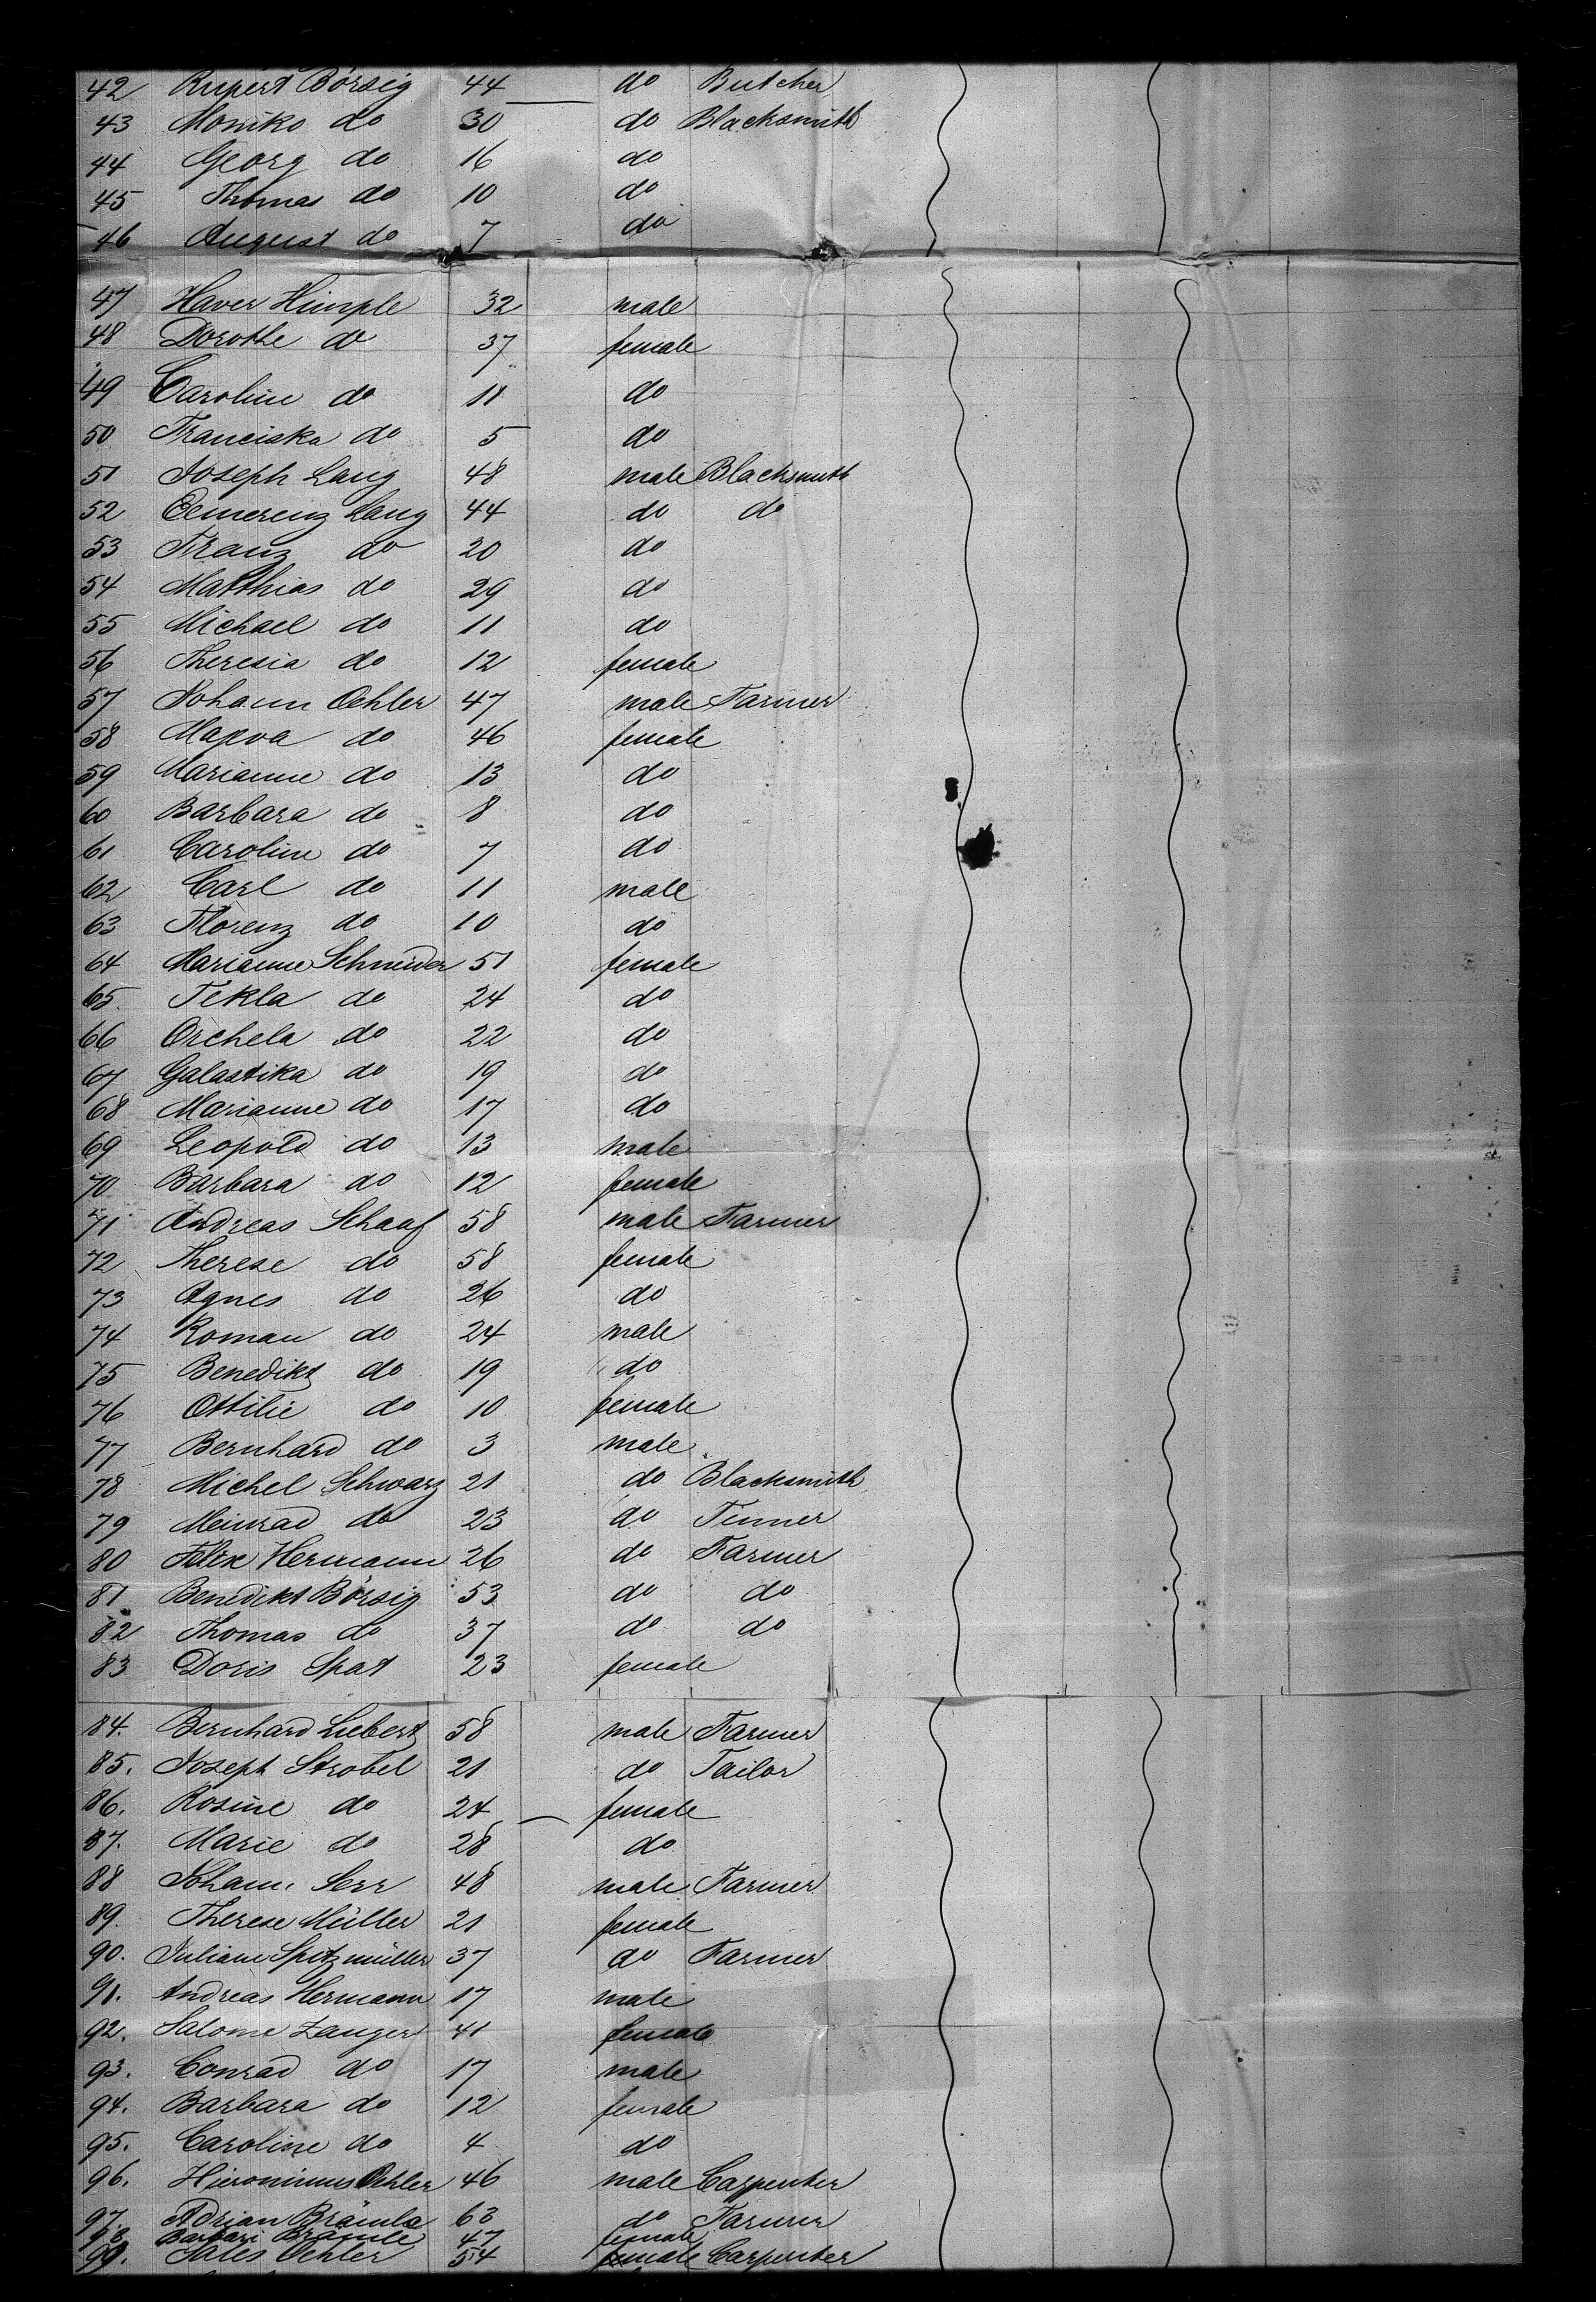 42 Rupert Börsig 44 do Butcher
43 Moniko do 30 do Blacksmith
44 Georg do 16 do
45 Thomas do 10 do
46 August do 7 do
47 Haver Himple 32 male
48 Dorothe do 37 female
49 Caroline do 11 do
50 Franciska do 5 do
51 Joseph Lang 48 male Blacksmith
52 Cemerenz Lang 44 do do
53 Franz do 20 do
54 Matthias do 29 do
55 Michael do 11 do
56 Theresia do 12 female
57 Johann Oehler 47 male Farmer
58 Magva do 46 female
59 Marianne do 13 do
60 Barbara do 8 do
61 Caroline do 7 do
62 Carl do 11 male
63 Florenz do 10 do
64 Marianne Schneider 51 female
65 Tekla do 24 do
66 Orchela do 22 do
67 Galastika do 19 do
68 Marianne do 17 do
69 Leopold do 13 male
70 Barbara do 12 female
71 Andreas Schaaf 58 male Farmer
72 Therese do 58 female
73 Agnes do 26 do
74 Roman do 24 male
75 Benedikt do 19 do
76 Ottilie do 10 female
77 Bernhard do 3 male
78 Michel Schwarz 21 do Blacksmith
79 Meinrad do 23 do Tinner
80 Felix Hermann 26 do Farmer
81 Benedikt Börsig 53 do do
82 Thomas do 37 do do
83 Doris Spat 23 female
84. Bernhard Liebert 58 male Farmer
85. Joseph Strobel 21 do Tailor
86. Rosine do 24 female
87. Marie do 28 do
88 Johann Serr 48 male Farmer
89. Therese Müller 21 female
90. Juliane Spitzmüller 37 do Farmer
91. Andreas Hermann 17 male
92. Salome Zanger 41 female
93. Conrad do 17 male
94. Barbara do 12 female
95. Caroline do 4 do
96. Hieronimus Oehler 46 male Carpenter
97. Adrian Brämle 63 do Farmer
98 Barbari Brämle 47 female
99. Sales Oehler 54 male Carpenter